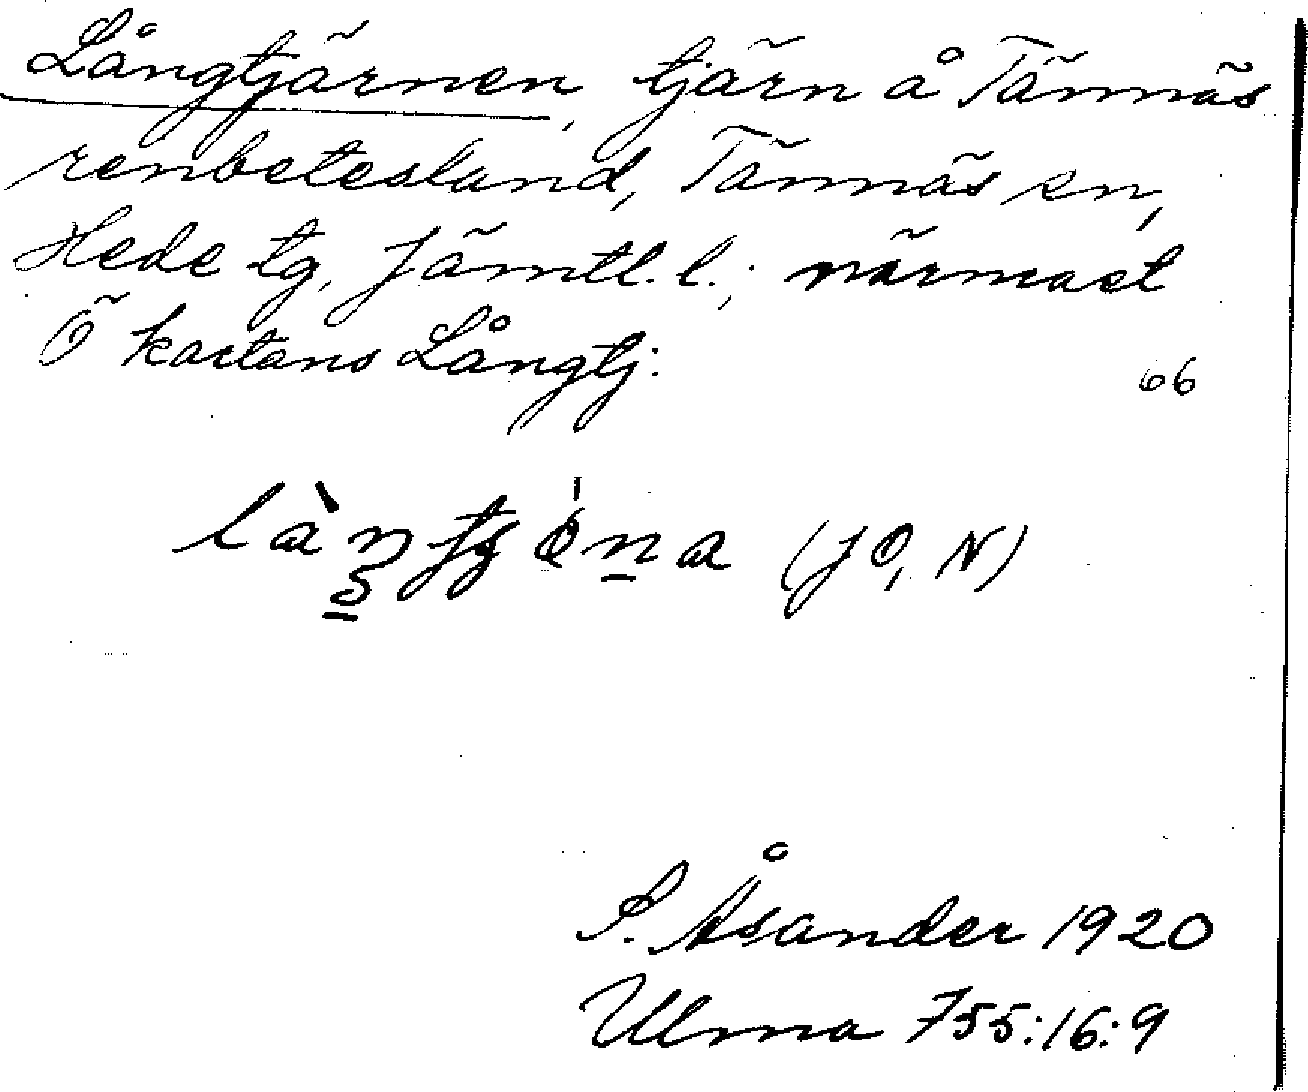 Långtjärnen, tjärn å Tännäs
renbetesland, Tännäs sn,
Hede tg, Jämtl. l.; närmast
Ö kartans Långtj:
66
(JO, N)
S. Åsander 1920
Ulma 755:16:9